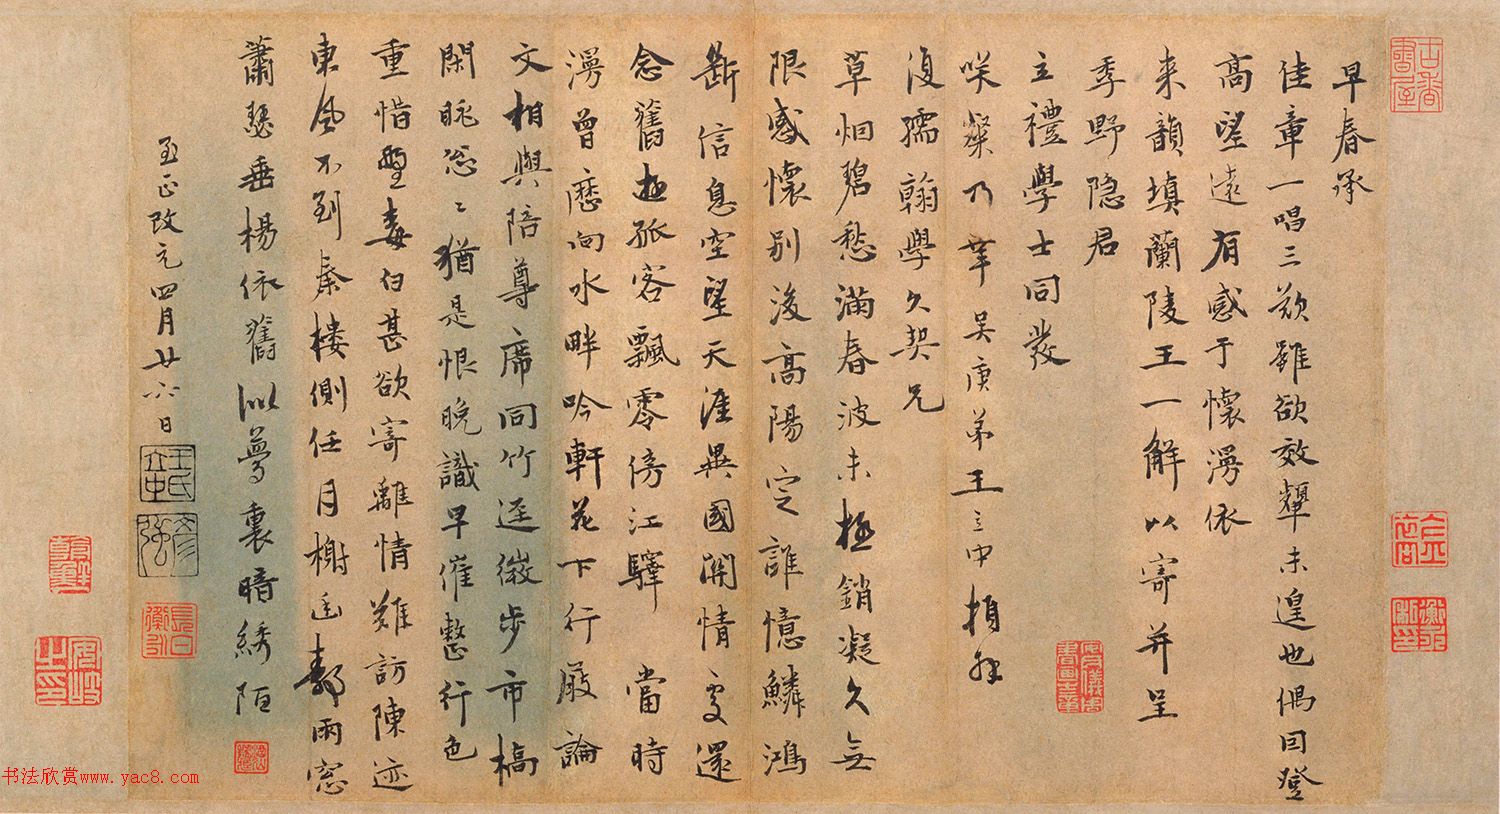 早春承
佳章一唱三歎雖欲效顰未遑也偶因登
高望遠有感于懷漫依
来韻填蘭陵王一解以寄并呈
季野隐君
立禮學士同發
咲粲乃幸吴庚弟王立中頓拜
復孺翰學久契兄
草烟碧愁滿春波未極銷凝久無
限感懷别後高陽定誰憶鱗鴻
斷信息空望天涯異國關情處還
念舊遊孤客飄零傍江驛 當時
漫曾歷向水畔吟軒花下行厨論
文相與陪尊席同竹逕微步市橋
閑眺忩〻猶是恨晚識早催整行色
重惜白甚欲寄離情難訪陳迹
東風不到秦樓側任月榭雨窓
蕭瑟垂楊依舊似夢裏暗綉陌
至正改元四月廿六日
王氏
彦強
书法欣赏www.yac8.com